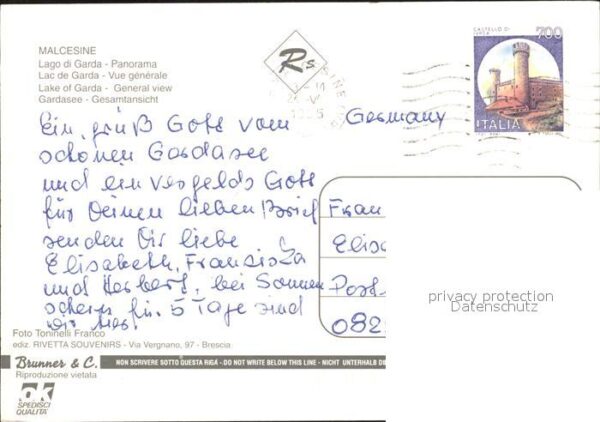 MALCESINE
Lago di Garda - Panorama
Lac de Garda - Vue générale
Lake of Garda - General view
Gardasee - Gesamtansicht
Rs
CASTELLO DI
700
ITALIA
Germany
Ein grüß Gott vom
schönen Gardasee
und ein Vergelds Gott
für Deinen lieben Brief
senden Dir liebe
Elisabeth, Franziska
und Herbert, bei Sonnen
schein für 5 Tage sind
wir hier!
Frau
Elisa
Post
082
privacy protection
Datenschutz
Foto Toninelli Franco
ediz. RIVETTA SOUVENIRS - Via Vergnano, 97 - Brescia
Brunner & C.
NON SCRIVERE SOTTO QUESTA RIGA - DO NOT WRITE BELOW THIS LINE - NICHT UNTERHALB
Riproduzione vietata
ok
SPEDISCI
QUALITA'